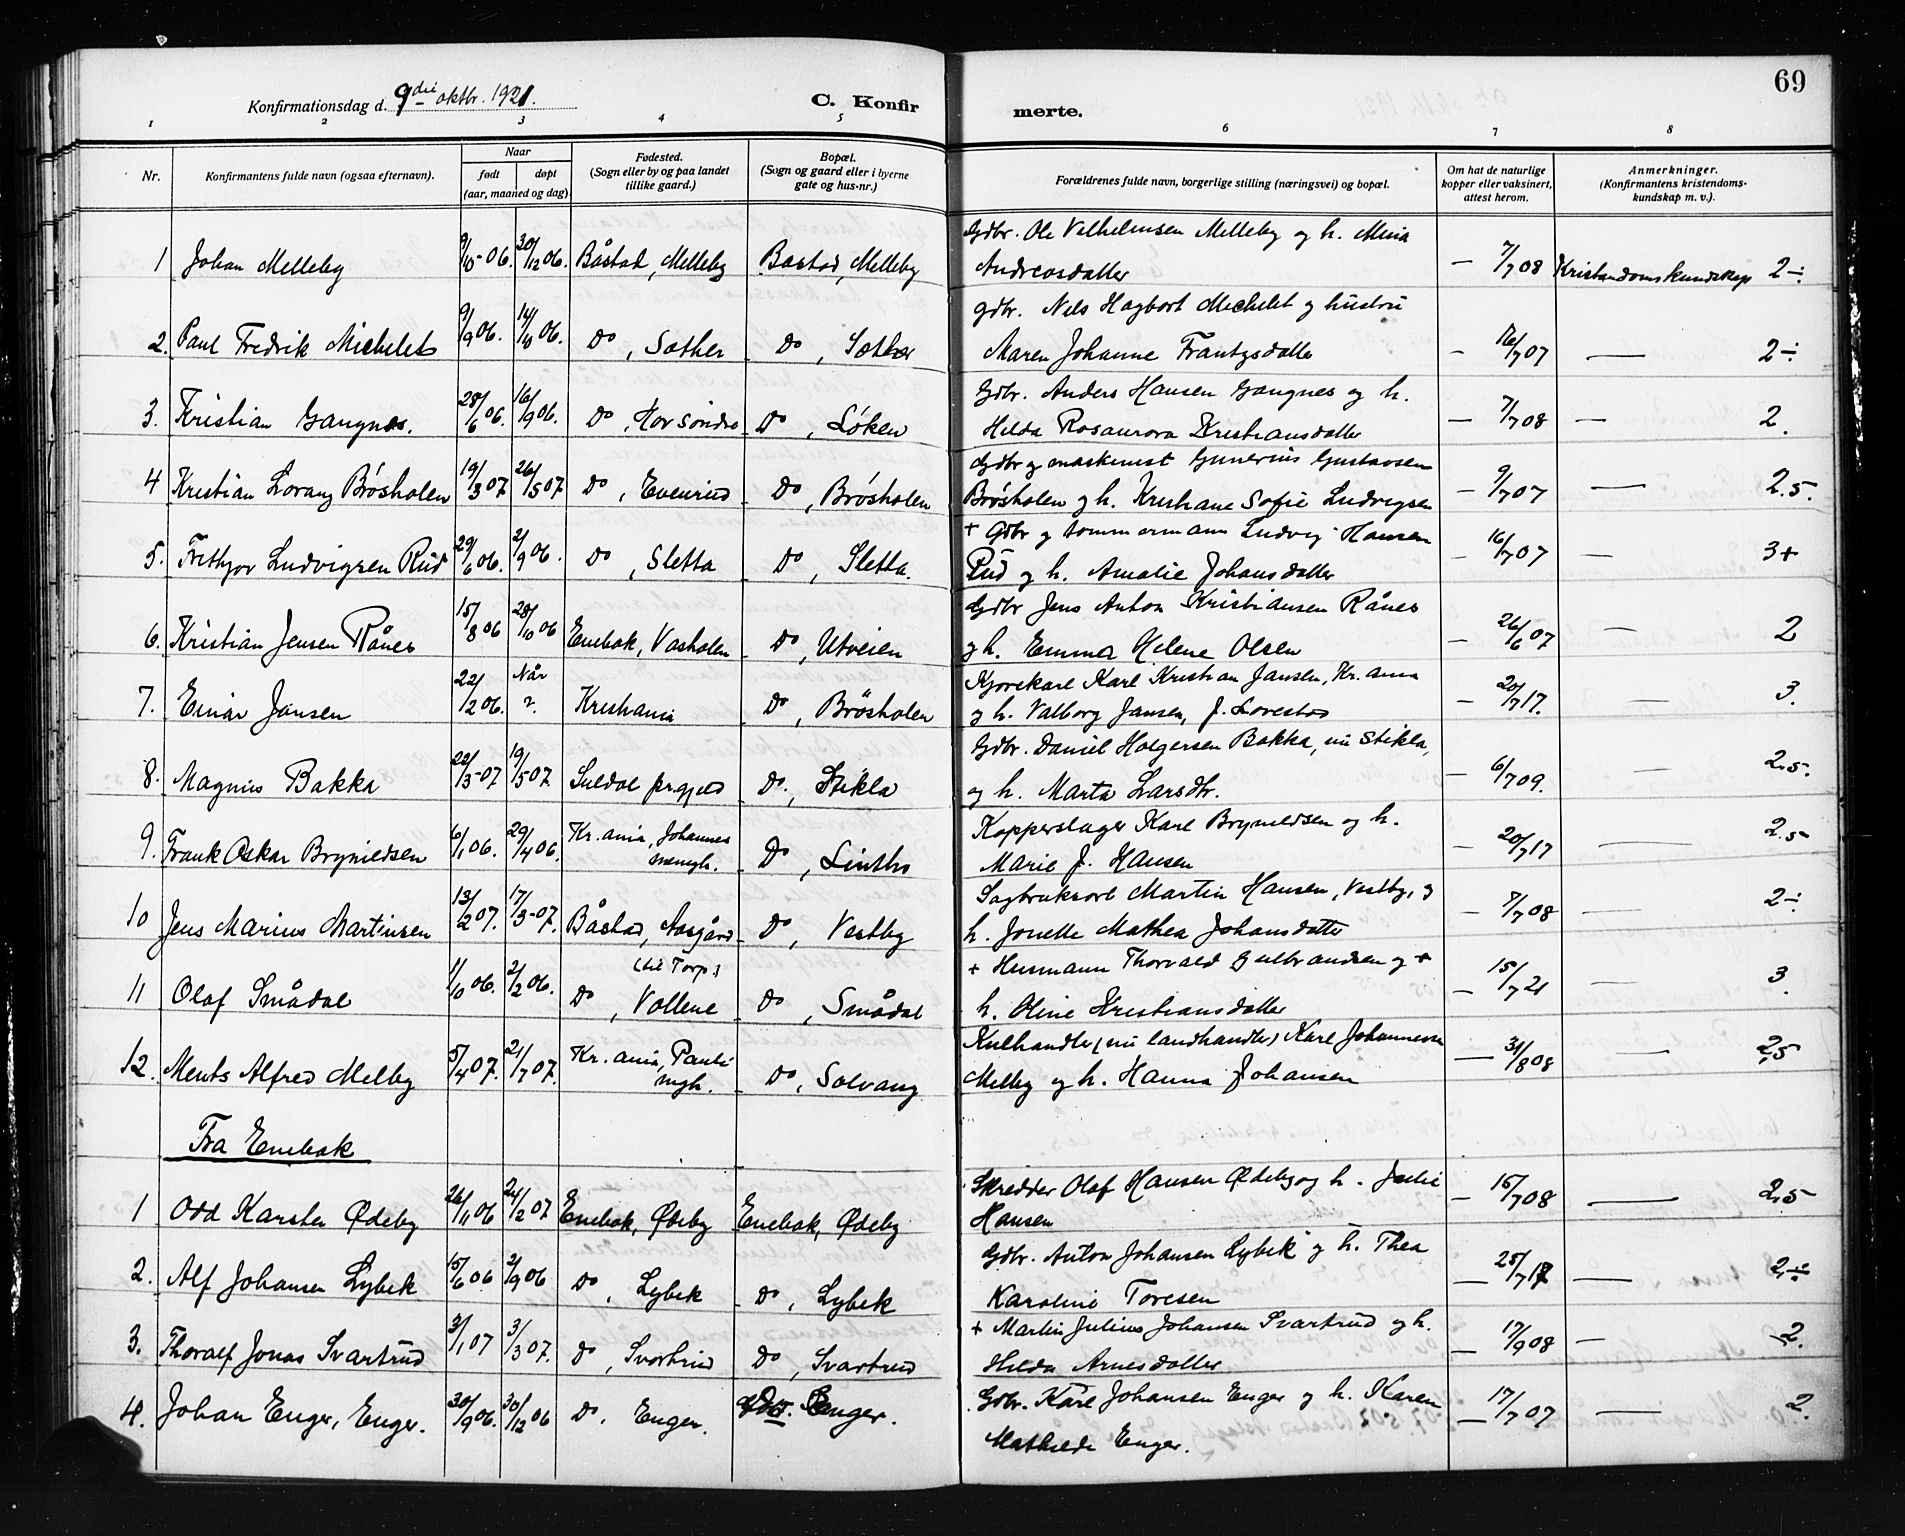 69
Konfirmationsdag d. 9de oktbr. 1921. C. Konfirmerte.
1 2 3 4 5 6 7 8
Nr. Konfirmantens fulde navn (ogsaa efternavn). Naar født døpt (aar, maaned og dag) Fødested. (Sogn eller by og paa landet tillike gaard.) Bopæl. (Sogn og gaard eller i byerne gate og hus-nr.) Forældrenes fulde navn, borgerlige stilling (næringsvei) og bopæl. Om hat de naturlige kopper eller vaksinert, attest herom. Anmerkninger. (Konfirmantens kristendomskundskap m. v.).
1 Johan Melleby 9/10-06. 30/12 06. Båstad, Melleby Båstad, Melleby Gdbr. Ole Vilhelmsen Melleby og h. Mina
Andreasdatter — 7/7 08 Kristendomskundskap 2÷
2. Paul Fredrik Michelet 9/9 06. 14/10 06. Do, Sæther Do, Sæther Gdbr. Nels Hagbart Michelet og hustru
Maren Johanne Frantzsdatter — 16/7 07 — 2÷
3. Kristian Gangnes. 28/6 06. 16/9 06. Do, Hov søndre Do, Løken Gdbr. Anders Hansen Gangnes og h.
Hilda Rosaurora Kristiansdatter — 7/7 08 — 2.
4 Kristian Lorang Brøsholen 19/3 07 26/5 07 Do, Evenrud Do, Brøsholen Gdbr og maskinist Gunerius Gustavsen
Brøsholen og h. Kristiane Sofie Ludvigsen — 9/7 07 — 2.5.
5. Frithjov Ludvigsen Rud 29/6 06. 2/9 06. Do, Sletta Do, Sletta. + Gdbr og tømmermann Ludvig Hansen
Rud og h. Amalie Johansdatter — 16/7 07 — 3+
6. Kristian Jensen Rånes 15/8 06 28/10 06 Enebak, Vasholen Do, Utveien Gdbr Jens Anton Kristiansen Rånes
og h. Emma Helene Olsen — 26/6 07 — 2
7. Einar Jansen 22/2 06. Når ?. Kristiania Do, Brøsholen Kjørekarl Karl Kristian Jansen, Kr.ania
og h. Valborg Jansen, f. Lorestad — 20/7 17. — 3.
8. Magnus Bakka 22/3-07 19/5 07 Suldal prgjeld Do., Stikla Gdbr. Daniel Holgersen Bakka, nu Stikla,
og h. Marta Larsdtr. — 6/7 09. — 2.5.
9. Frank Oskar Brynildsen 6/1 06. 29/4 06. Kr.ania, Johannes menigh. Do, Lintho Kopperslager Karl Brynildsen og h.
Marie f. Hansen — 20/7 17 — 2.5
10 Jens Marius Martinsen 13/2 07. 17/3-07. Båstad, Aasgård Do, Vestby Sagbruksarb Martin Hansen, Vestby, og
h. Jonette Mathea Johansdatter — 7/7 08 — 2÷
11 Olaf Smådal 1/10 06. 2/12 06. (til Torp.) Do, Vollene Do, Smådal + Husmann Thorvald Gulbrandsen og +
h. Oline Kristiansdatter — 15/7 21 — 3.
12. Ments Alfred Melby 5/4 07. 21/7 07. Kr.ania, Pauli mgh. Do, Solvang Kulhandler (nu landhandler) Karl Johannesen
Melby og h. Hanna Johansen — 31/8 08 — 2,5
Fra Enebak
1 Odd Karsten Ødeby 26/11 06 24/2 07 Enebak, Ødeby Enebak, Ødeby Skredder Olaf Hansen Ødeby og h. Julie
Hansen — 15/7 08 — 2,5
2. Alf Johansen Lybek 15/6 06 2/9 06 Do, Lybek Do, Lybek Gdbr. Anton Johansen Lybek og h. Thea
Karoline Toresen — 25/7 17 — 2,÷
3. Thoralf Jonas Svartrud 3/1 07 3/3 07. Do, Svartrud Do, Svartrud + Martin Julius Johansen Svartrud og h.
Hilda Arnesdatter — 17/9 08 — 2.
4. Johan Enger, Enger. 30/9 06. 30/12 06 Do. Enger. Do. Enger. Gdbr. Karl Johansen Enger og h. Karen
Mathilde Enger. — 17/7 07 — 2.